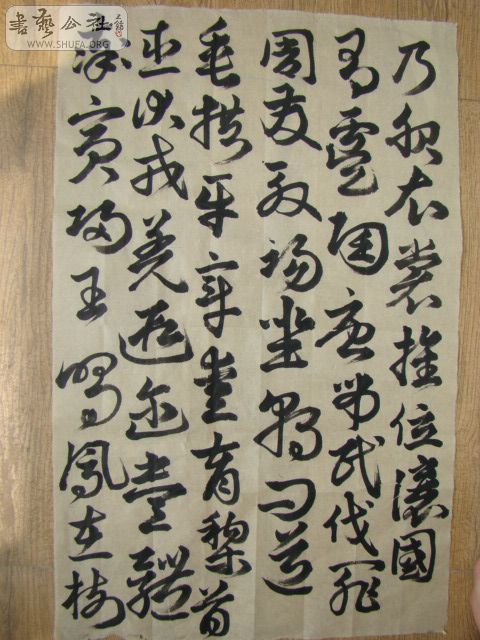 書藝公社
WWW.SHUFA.ORG
乃服衣裳推位讓國
有虞陶唐弔民伐罪
周發殷湯坐朝問道
垂拱平章愛育黎首
臣伏戎羌遐邇壹體
率賓歸王鳴鳳在樹